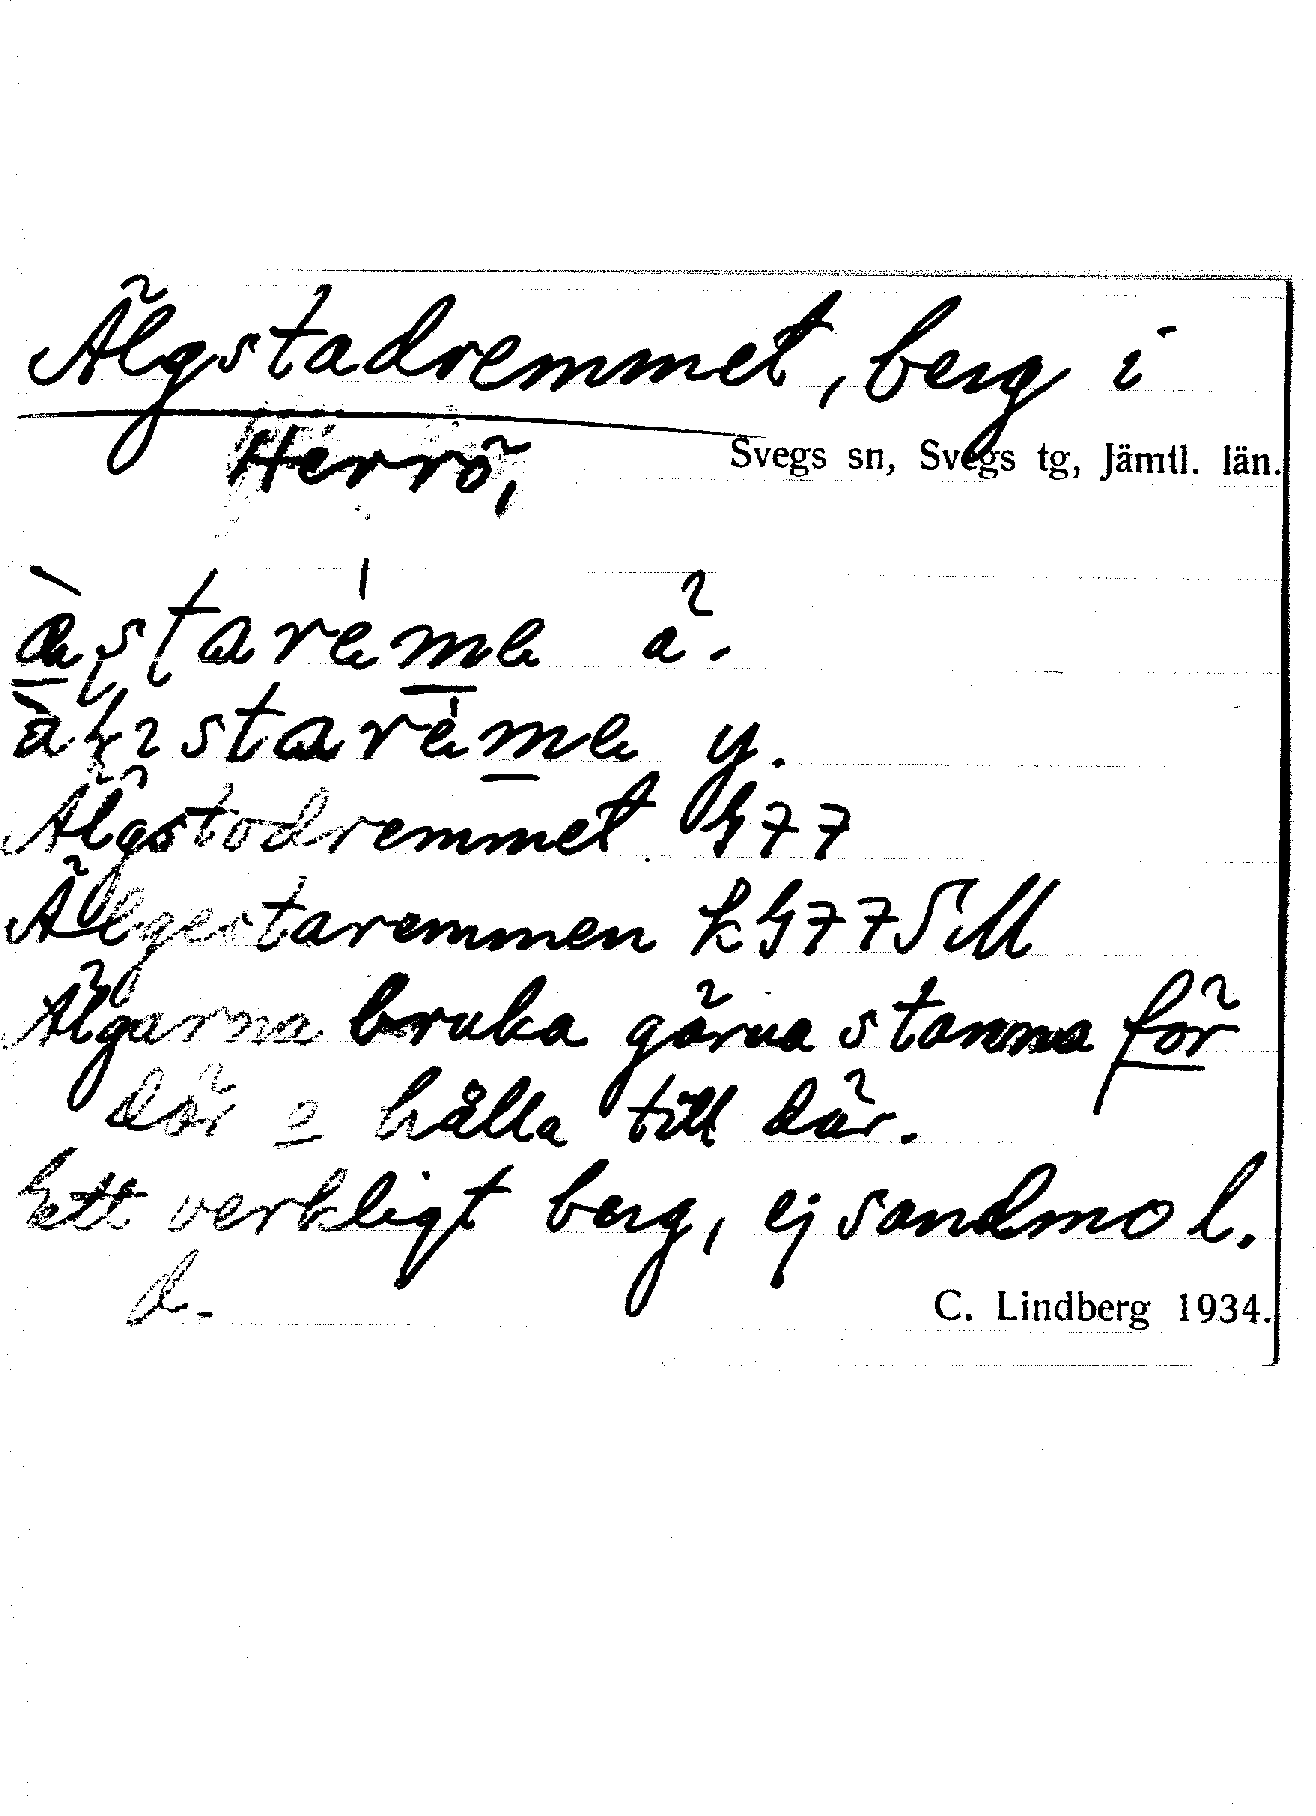 Älgstadremmet, berg i
Herrö, Svegs sn, Svegs tg, Jämtl. län.
ä.
y.
Älgstodremmet G77
Älgestaremmen kG77SM
Älgarna bruka gärna stanna för
där = hålla till där.
Ett verkligt berg, ej sandmo l.
d.
C. Lindberg 1934.